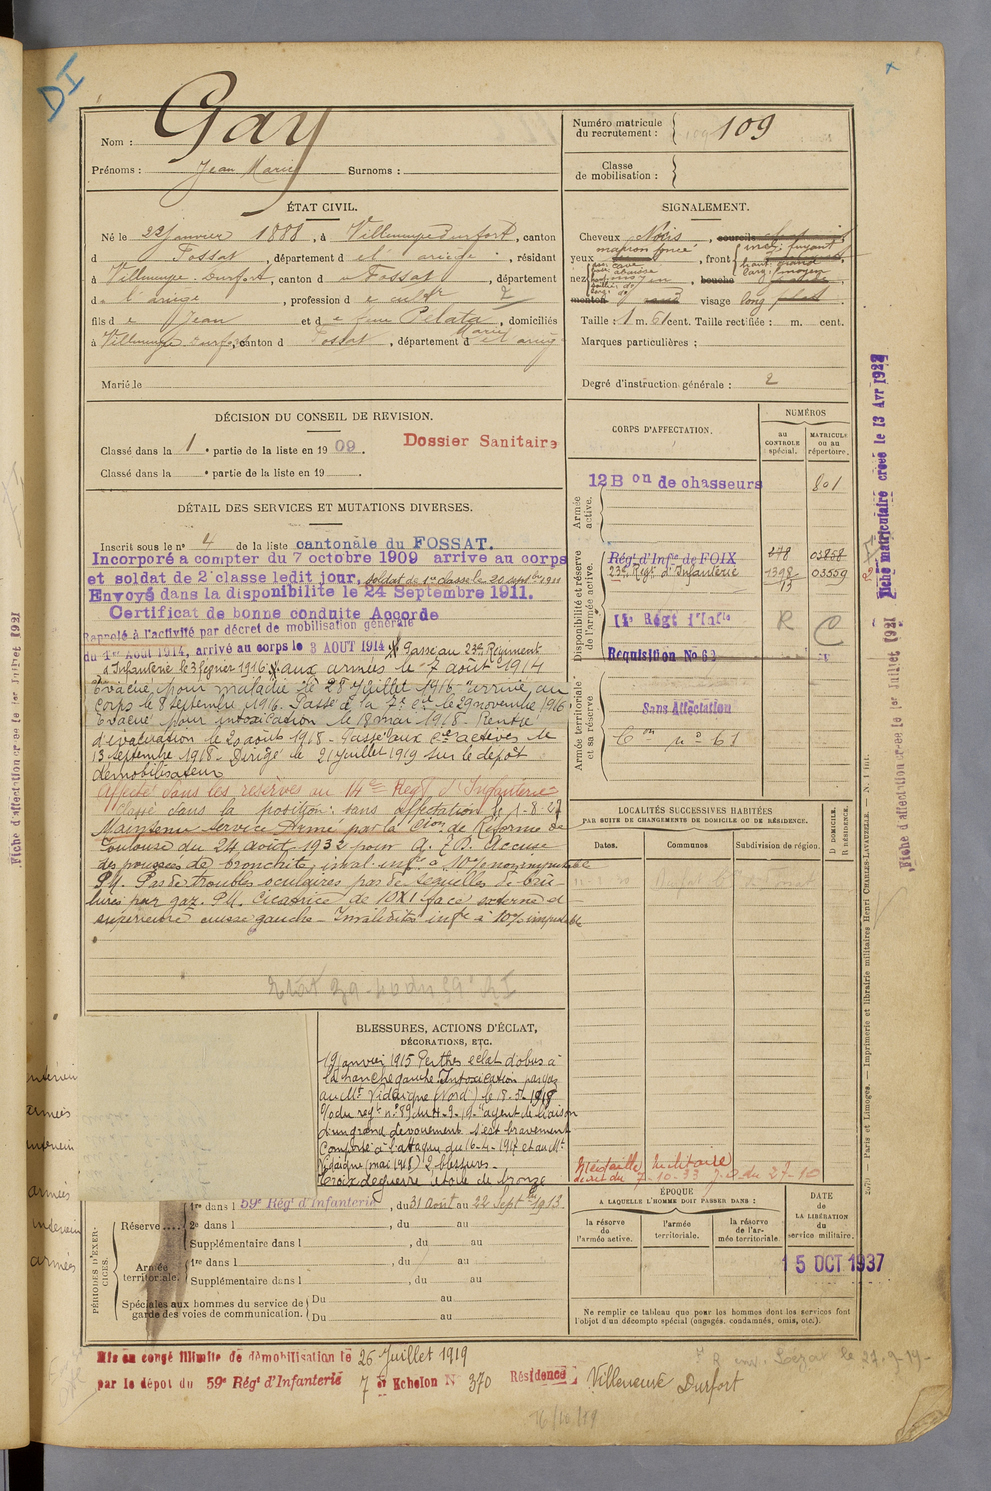 DI
Nom : Gay
Prénoms : Jean Marie Surnoms :
Numéro matricule du recrutement : 109
Classe de mobilisation :
ÉTAT CIVIL.
Né le 22 janvier 1888, à Villeneuve Durfort, canton
d Fossat, département d el ariège, résidant
à Villeneuve-Durfort, canton d u Fossat, département
d e l'ariège, profession d e cultr 2
fils d e Jean et d e feue Pelata Marie, domiciliés
à Villeneuve-Durfort, canton d Fossat, département d el'arieg
Marié le
SIGNALEMENT.
Cheveux Noirs, sourcils
yeux marron foncé, front incl: fuyant
haut: grand
larg: moyen
nez moyen, bouche
menton visage long
Taille : 1 m. 61 cent. Taille rectifiée : m. cent.
Marques particulières :
Degré d'instruction générale : 2
DÉCISION DU CONSEIL DE REVISION.
Classé dans la 1e partie de la liste en 1909.
Dossier Sanitaire
Classé dans la e partie de la liste en 19
DÉTAIL DES SERVICES ET MUTATIONS DIVERSES.
Inscrit sous le n° 4 de la liste cantonale du FOSSAT.
Incorporé a compter du 7 octobre 1909 arrive au corps
et soldat de 2e classe ledit jour, soldat de 1re classe le 20 septbre 1911
Envoyé dans la disponibilité le 24 Septembre 1911.
Certificat de bonne conduite Accorde
Rappelé à l'activité par décret de mobilisation générale
du 1er Août 1914, arrivé au corps le 3 AOUT 1914 Passé au 23e Régiment
d'Infanterie le 3 février 1916 aux armées le 7 août 1914
Evacué pour maladie le 28 Juillet 1916 arrivé au
Corps le 8 septembre 1916. Passé à la 7e Cie le 29 novembre 1916
Evacué pour intoxication le 18 mai 1918 - Rentré
d'évacuation le 20 août 1918 - Passé aux Cies actives le
13 septembre 1918 - Dirigé le 21 juillet 1919 sur le dépôt
démobilisateur
Affecté dans les réserves au 14e Régt d'Infanterie
Classé dans la position: sans affectation le 1-8-27
Maintenu Service Armé par la Cion de Réforme de
Toulouse du 24 août 1932 pour Accuse
des poussées de bronchite, inval. infre à 10%
P.M. Pas de troubles oculaires pas de séquelles de brû-
lures par gaz. P.M. Cicatrice de 10X1 face externe et
supérieure cuisse gauche - Invalidité infre à 10% imputable
CORPS D'AFFECTATION.
NUMÉROS
au CONTROLE spécial.
MATRICULE ou au répertoire.
Armée active.
12 Bon de chasseurs 801
Disponibilité et réserve de l'armée active.
Régt d'Infie de FOIX 278 03858
23e Régt d'Infanterie 1398 03559
14e Régt d'Infie R C
Requisition No 63
Armée territoriale et sa réserve
Sans Affectation
Con no 61
LOCALITÉS SUCCESSIVES HABITÉES
PAR SUITE DE CHANGEMENTS DE DOMICILE OU DE RÉSIDENCE.
Dates. Communes. Subdivision de région. D DOMICILE. R RÉSIDENCE.
BLESSURES, ACTIONS D'ÉCLAT,
DÉCORATIONS, ETC.
19 janvier 1915 Perthes eclat d'obus à
la hanche gauche. Intoxication par gaz
au Mt Vidaigne (Nord) le 18-5-1918
O/du regt n° 89 du 4-9-19 "agent de liaison
d'un grand devouement s'est bravement
Comporté à l'attaque du 16-4-1917 et au Mt
Vidaigne (mai 1918) 2 blessures -
Croix de guerre étoile de bronze
Médaille Militaire
décret du 7-10-33 J.O du 27-10
PÉRIODES D'EXERCICES.
Réserve 1re dans l 59e Régt d'Infanterie, du 31 Août au 22 Septbre 1913
2e dans l , du au
Supplémentaire dans l , du au
Armée territoriale. 1re dans l , du au
Supplémentaire dans l , du au
Spéciales aux hommes du service de garde des voies de communication. Du au
Du au
ÉPOQUE
A LAQUELLE L'HOMME DOIT PASSER DANS :
la réserve de l'armée active.
l'armée territoriale.
la réserve de l'armée territoriale.
DATE DE LA LIBÉRATION du service militaire.
15 OCT 1937
Ne remplir ce tableau que pour les hommes dont les services font
l'objet d'un décompte spécial (engagés, condamnés, omis, etc.).
Mis en congé illimité de démobilisation le 26 Juillet 1919
par le dépot du 59e Régt d'Infanterie 7e Echelon N° 370 Résidence Villeneuve Durfort
16/10/19
Fiche matriculaire créée le 13 Avr 1937
Fiche d'affectation créée le 1er Juillet 1921
Paris et Limoges. — Imprimerie et librairie militaires Henri CHARLES-LAVAUZELLE. — N. 1 int.
Fiche d'affectation créée le 1er Juillet 1921
intérieur
armées
intérieur
armées
intérieur
armées